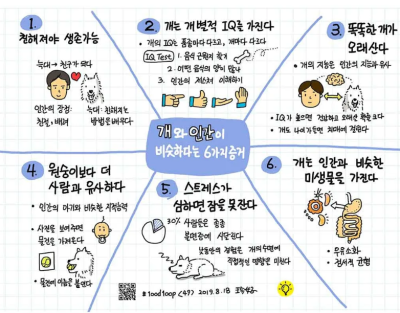 개와 인간이
비슷하다는 6가지증거
1.
친해져야 생존가능
늑대 → 친구가 되다
인간의 강점:
친절, 배려
늑대: 친해지는
방법을 배우다
2. 개는 개별적 IQ를 가진다
• 개의 IQ는 품종마다 다르고, 개마다 다르다
IQ Test
1. 음식 근원지 찾기
2. 어떤 음식의 양이 많나
3. 인간의 제스처 이해하기
3. 똑똑한 개가
오래산다
• 개의 지능은 인간의 지능과 유사
• IQ가 높으면 건강하고 오래살 확률 크다
• 개도 나이가들면 치매에 걸린다
4. 원숭이보다 더
사람과 유사하다
• 인간의 아기와 비슷한 지적능력
• 사진을 보여주면
물건을 가져온다
• 물건에 이름을 붙인다
5. 스트레스가
심하면 잠을 못잔다
30% 사람들은 종종
불면증에 시달린다
낮동안의 경험은 개의수면에
직접적인 영향을 미친다
6. 개는 인간과 비슷한
미생물을 가진다
• 무유소화
• 정서적 균형
#100d100p <47> 2019.8.18